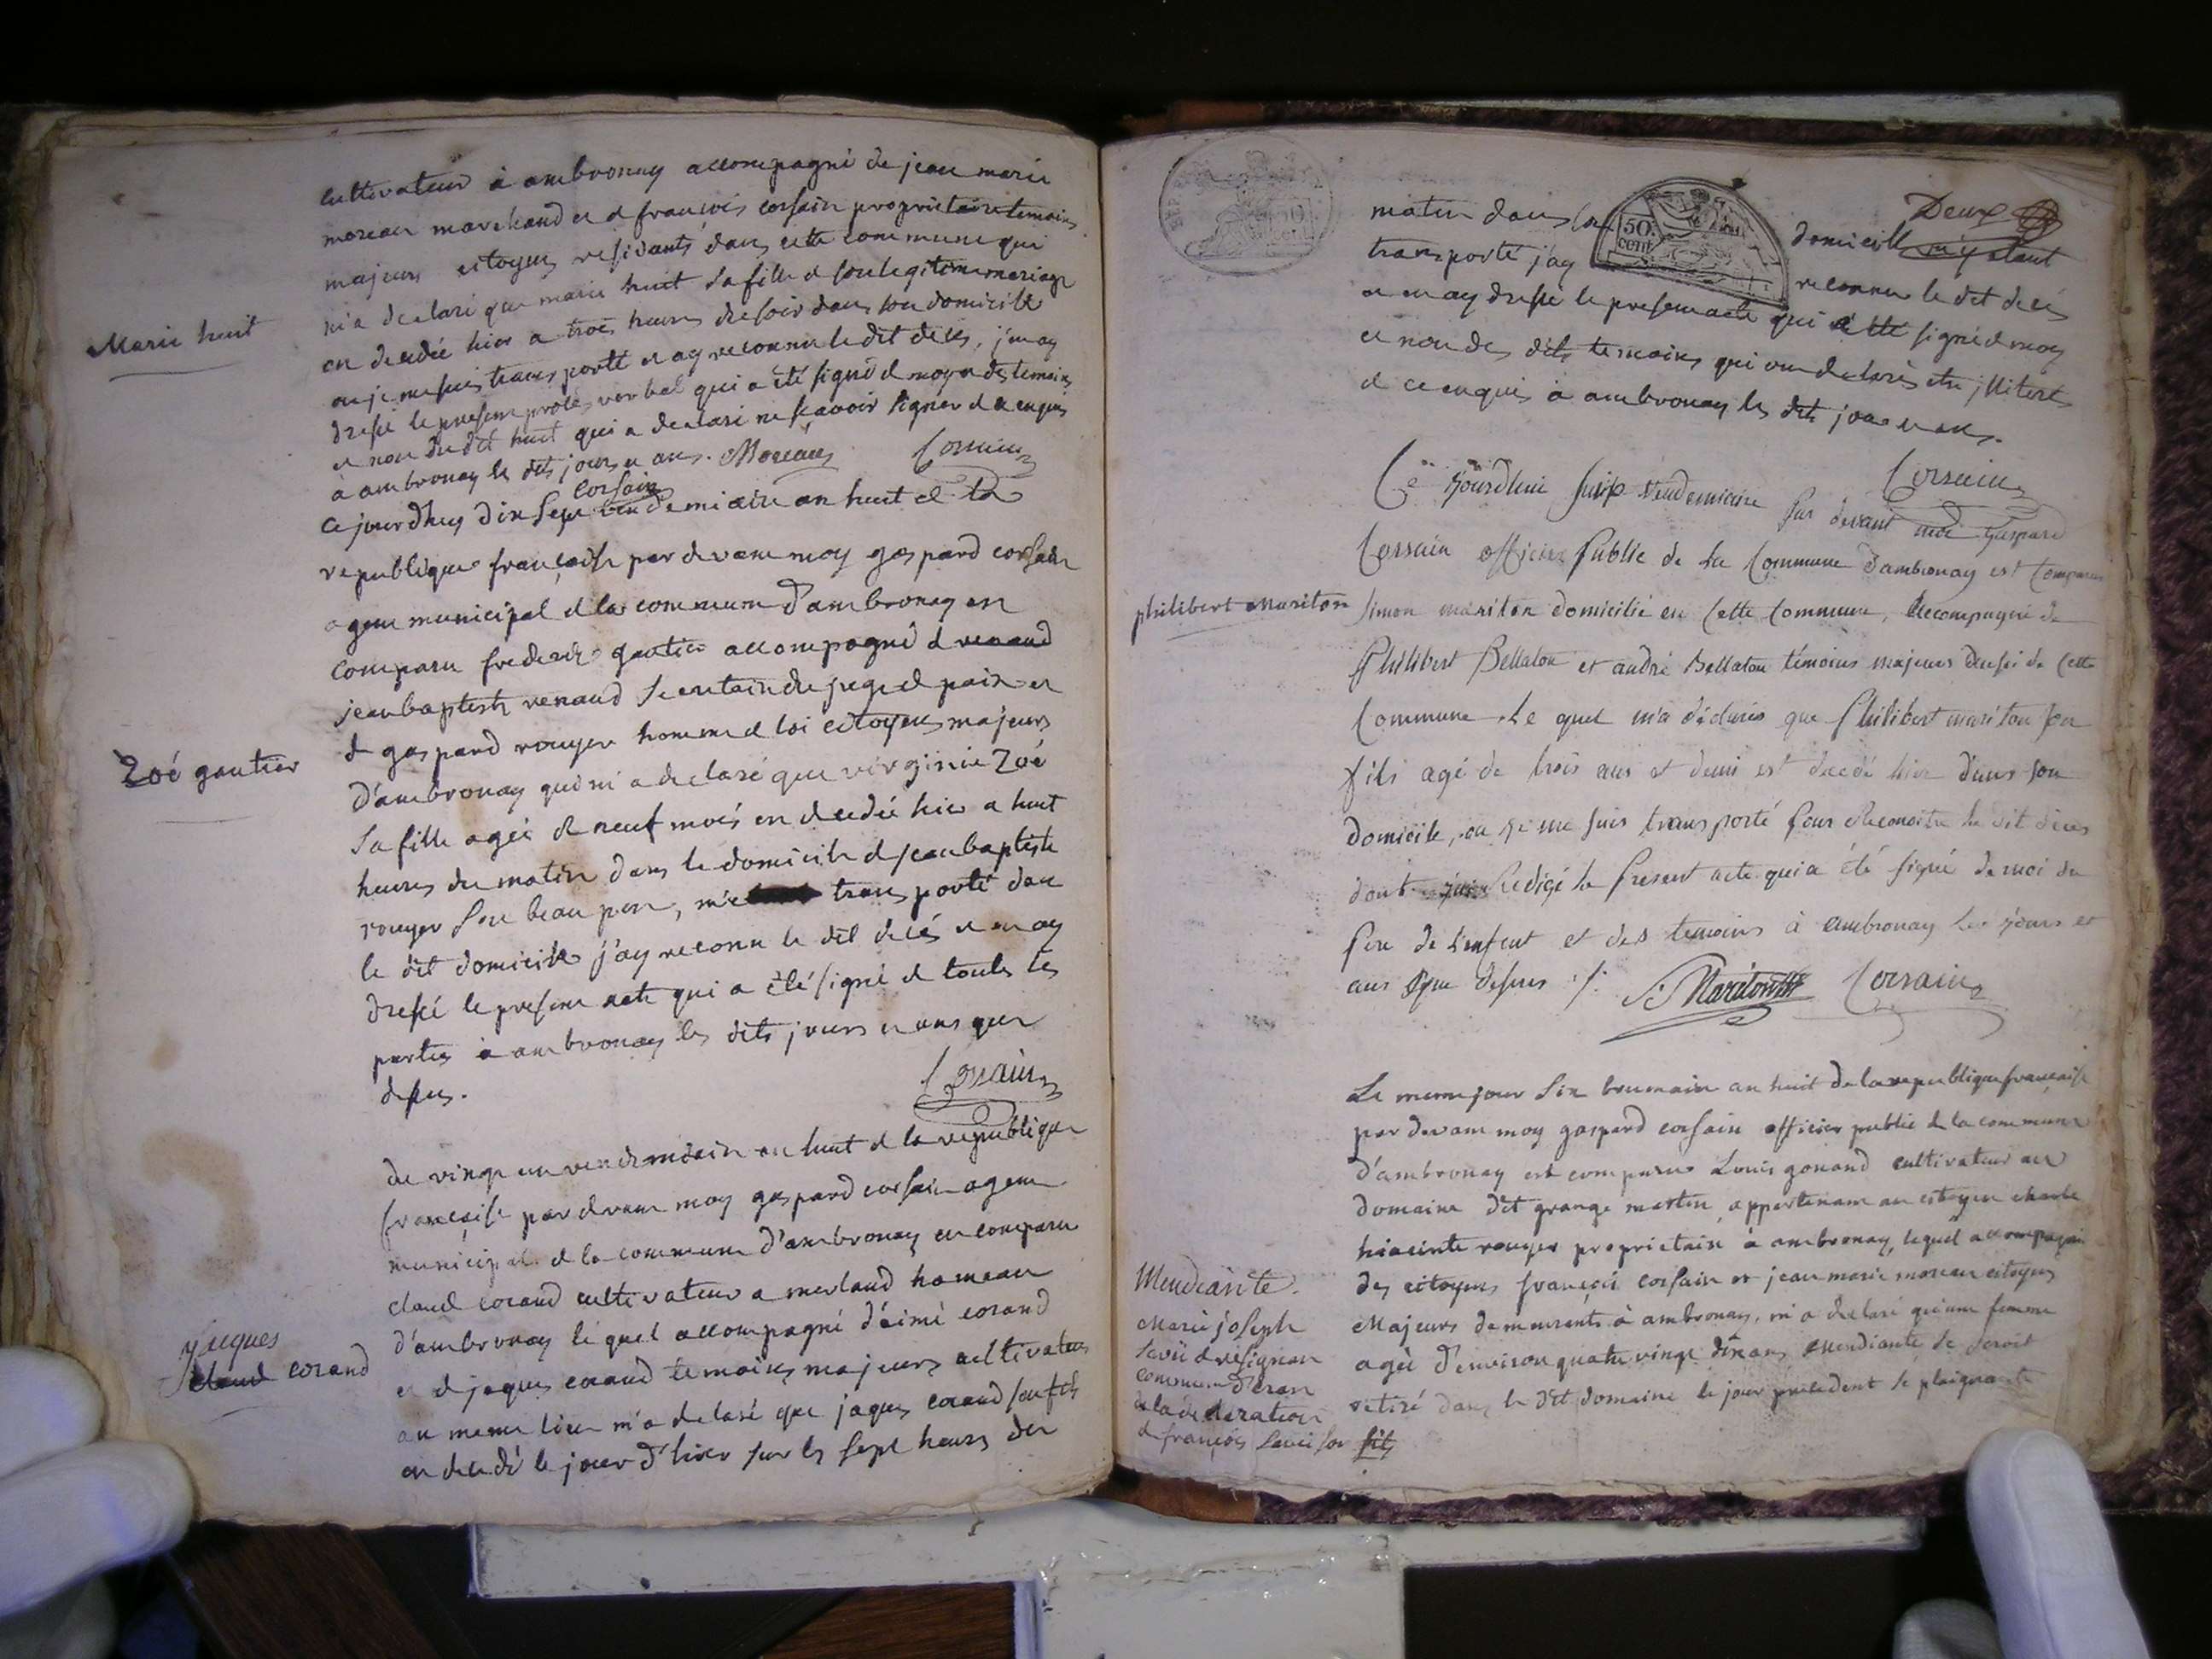 cultivateur à ambronay accompagné de jean marie
moreau marchand et d françois corsain propriétaire temoins
majeurs citoyens residants dans cette commune qui
m'a declaré que marie huit sa fille d son legitime mariage
en decedée hier a trois heures du soir dans son domicille
ou je me suis trans porté et ay reconnu le dit decés, j'en ay
dressé le present procés verbal qui a été signé d moy et des temoins
et non du dit huit qui a declaré ne scavoir signer d ce enquis
à ambronay les dits jours et ans. Moreau Corsain
corsain
Marie huit
ce jourdhuy dix sept vendemiaire an huit d la
republique française par devant moy gaspard corsain
agent municipal d la commune d'ambronay en
comparu frederich gautier accompagné d renaud
jean baptiste renaud secretaire du juge d paix et
d gaspard rouyer homme d loi citoyens majeurs
d'ambronay qui m'a declaré que virginie Zoé
sa fille agée d neuf mois en decedée hier a huit
heures du matin dans le domicile d jean baptiste
rouyer son beau pere, m'e trans porté dan
le dit domicile j'ay reconnu le dit decés et en ay
dressé le present acte qui a été signé d toutes les
parties à ambronay les dits jours et ans que
dessus. Corsain
Zoé gautier
du vingt un vendemiaire an huit d la republique
française par devant moy gaspard corsain agent
municipal d la commune d'ambronay en comparu
claud corand cultivateur a merland hameau
d'ambronay le quel accompagné d'aimé corand
et d jaques corand temoins majeurs cultivateurs
au meme lieu m'a declaré que jaques corand son fils
en decedé le jour d'hier sur les sept heures du
Jacques
claud corand
Deux
matin dans son domicille m'y etant
50. cent
transporté j'ay reconnu le dit decés
et en ay dressé le present acte qui a été signé d moy
et non des dits temoins qui ont declarés etre illiterés
d ce enquis à ambronay les dits jour et ans.
Corsain
Ce jourdhui six vendemiaire par devant moi Gaspard
Corsain officier Public de La Commune d'ambronay est Comparu
Simon mariton domicilié en Cette Commune, accompagné de
Philibert Bellaton et andré Bellaton témoins majeurs aussi de Cette
Commune Le quel m'a déclarés que Philibert mariton son
fils agé de trois ans et demi est decedé hier dans son
domicile, ou je me suis transporté pour Reconoitre le dit deces
dont j'ai Redigé le Present acte qui a été signé de moi du
Pere de l'enfent et des temoins à ambronay les jours et
ans que dessus ./. S. Mariton Corsain
philibert Mariton
Le meme jour six brumaire an huit de la republique française
par devant moy gaspard corsain officier public d la commune
d'ambronay est comparu Louis gonand cultivateur au
domaine dit grange martin, appartenant au citoyen charle
hiacinte rouyer proprietaire à ambronay, lequel accompagné
des citoyens françois corsain et jean marie moreau citoyens
Majeurs demeurants à ambronay, m'a declaré qu'une femme
agée d'environ quatre vingt dix ans mendiante se seroit
retiré dans le dit domaine le jour precedent se plaignante
Mendiante.
Marie joseph
commune d'eran
de la declaration
d françois son fils